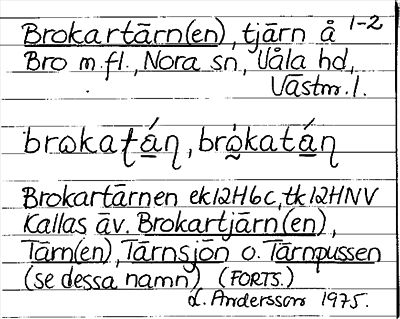 Brokartärn(en), tjärn å 1-2
Bro m.fl., Nora sn, Våla hd,
Västm. l.
brωkaʈá̱ƞ, brὠ̰kaʈá̱ƞ
Brokartärnen ek12H6c, tk12HNV
Kallas äv. Brokartjärn(en),
Tärn(en), Tärnsjön o. Tärnpussen
(se dessa namn) (FORTS.)
L. Andersson 1975.